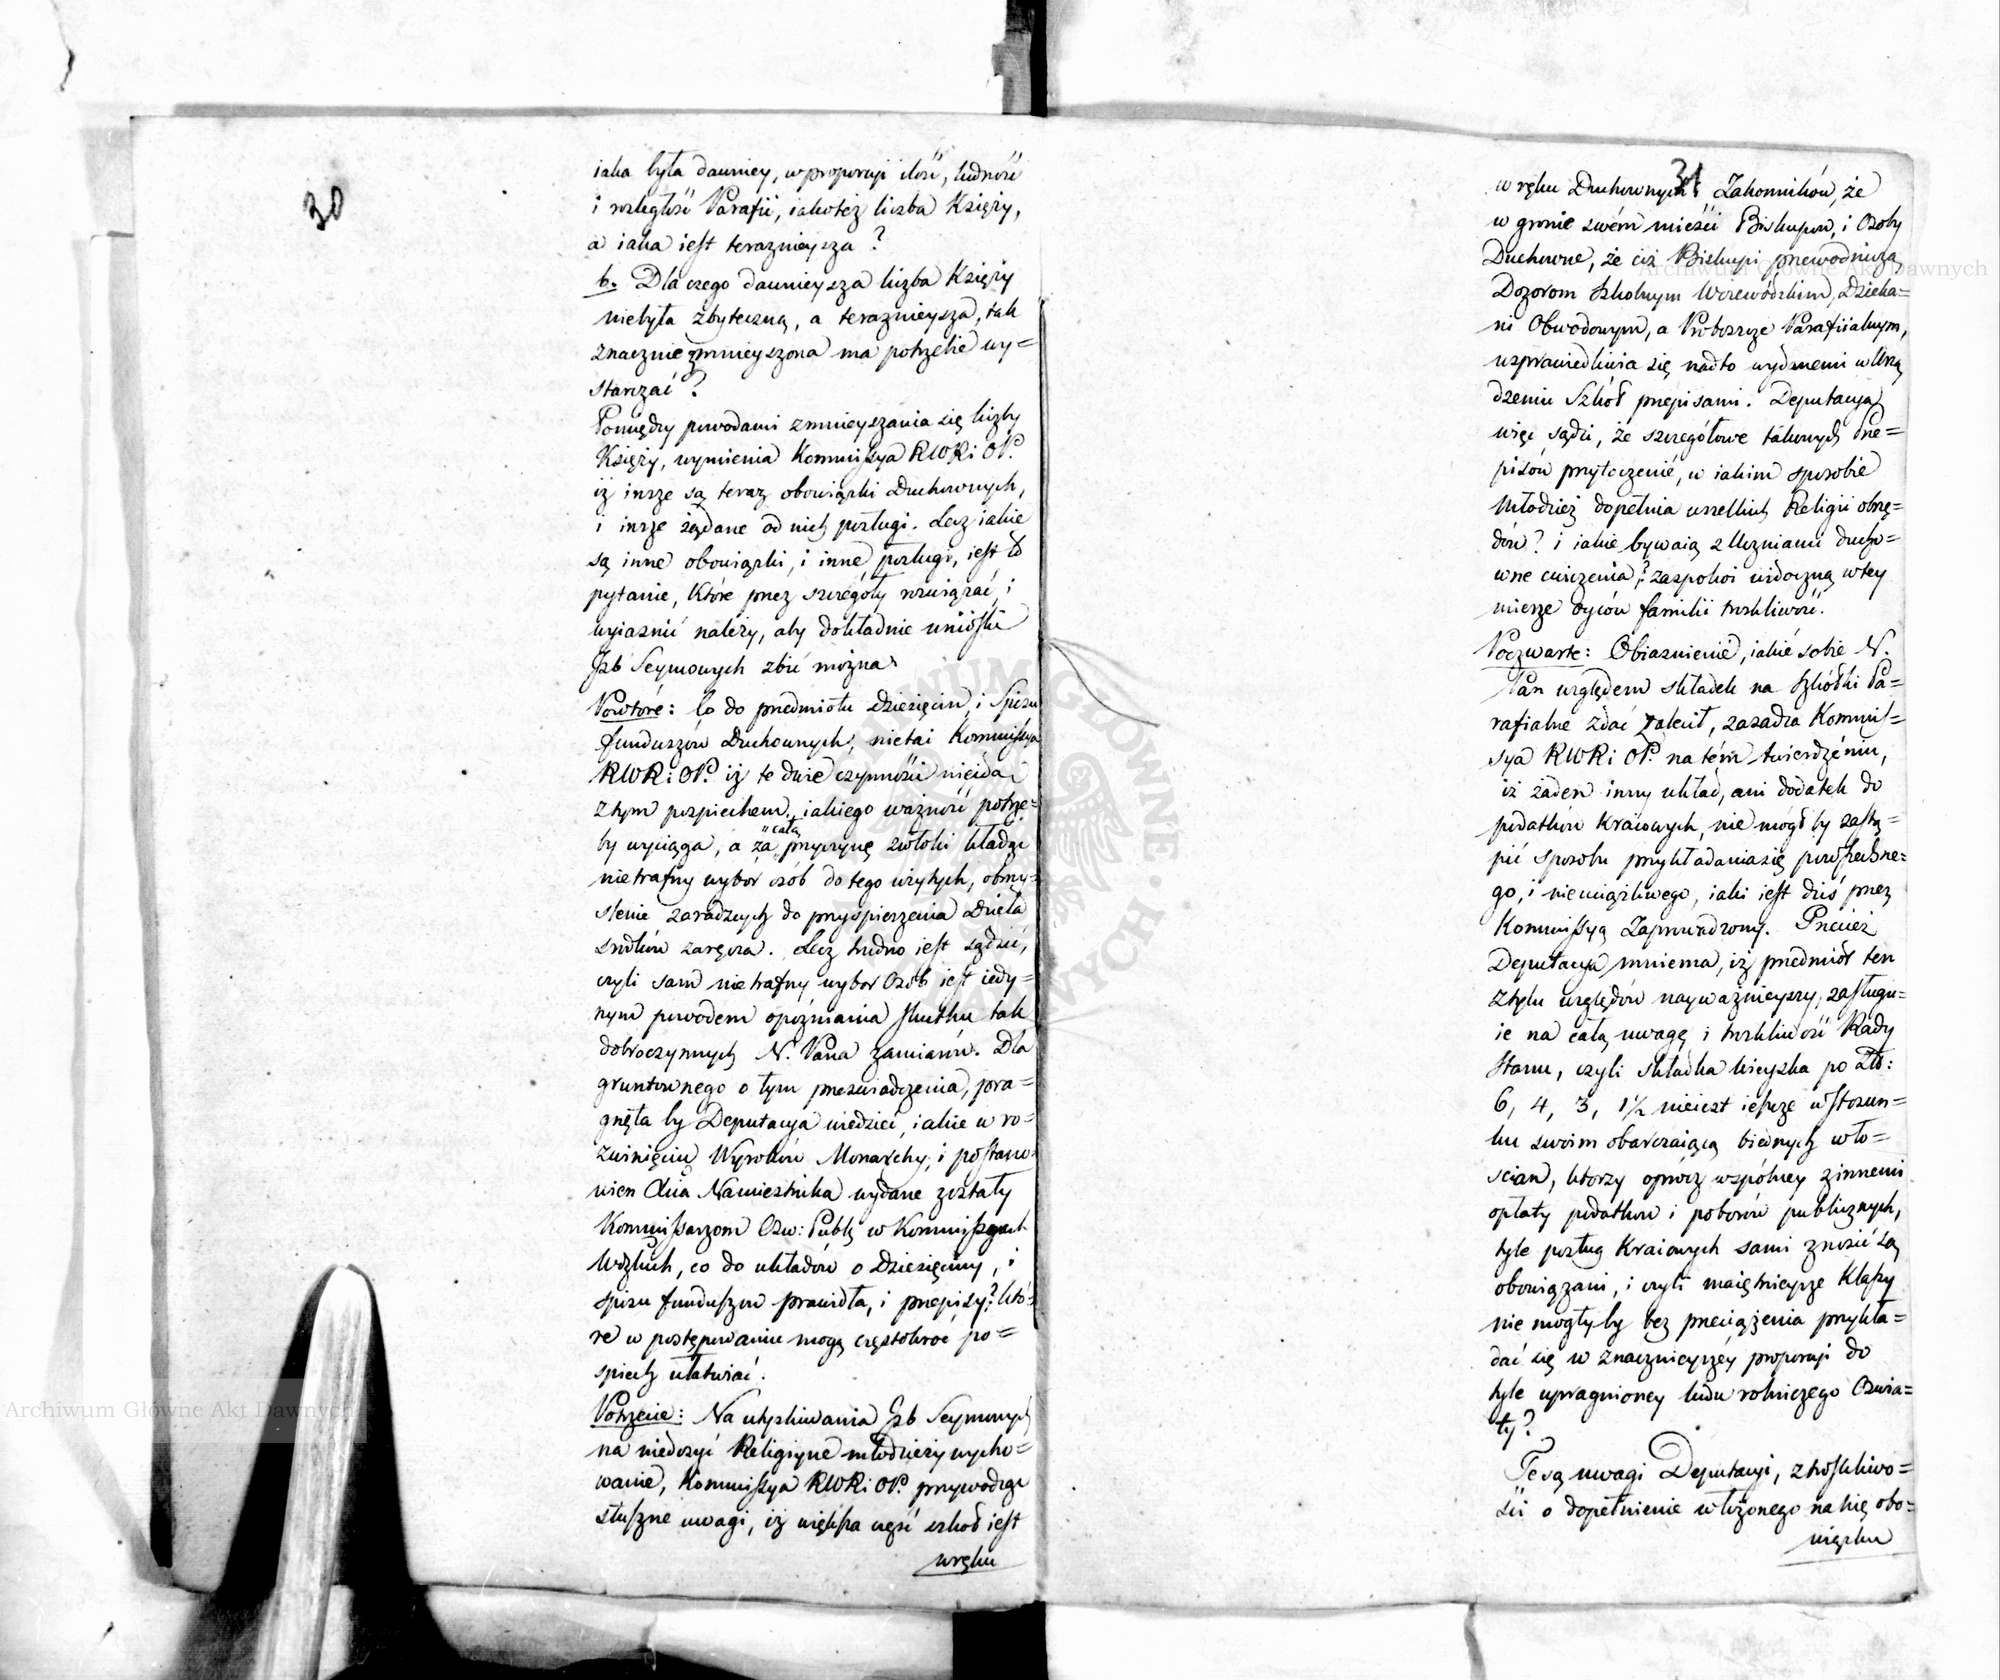 30
iaka była dawniey, w proporcyi ilości, ludności
i rozległości Parafii, iakoteż liczba Księży,
a iaka iest teraznieysza?
b. Dla czego dawnieysza liczba Księży
niebyła zbyteczną, a teraznieysza, tak
znacznie zmnieyszona ma potrzebie wy=
starczać?
Pomiędzy powodami zmnieyszania się liczby
Księży, wymienia Kommissya RWRiOP.
iż insze są teraz obowiązki Duchownych,
i insze żądane od nich posługi. Lecz iakie
są inne obowiązki, i inne posługi, iest to
pytanie, które przez szczegóły rozwiązać, i
wyiasnić należy, aby dokładnie wnioski
Izb Seymowych zbić można.
Powtóre: Co do przedmiotu Dziesięcin, i Spisu
funduszów Duchownych, nietai Kommissya
RWRiOP. iż te dwie czynności nieidą
z tym pospiechem, iakiego ważność potrze=
by wyciąga, a za „całą przyczynę zwłoki kładąc
nietrafny wybór osób do tego użytych, obmy=
slenie zaradczych do przyspieszenia Dzieła
srodków zaręcza. Lecz trudno iest sądzić,
czyli sam nietrafny wybor Osób iest iedy=
nym powodem opóźniania skutku tak
dobroczynnych N. Pana zamiarów. Dla
gruntownego o tym przeswiadczenia, pra=
gnęła by Deputacya wiedzieć, iakie w ro=
zwinięciu Wyroków Monarchy, i postano=
wien Xcia Namiestnika wydane zostały
Kommissarzom Osw: Publ. w Kommissyach
Wdzkich, co do układów o Dziesięciny, i
spisu funduszów prawidła, i przepisy? któ=
re w postępowaniu mogą częstokroć po=
spiech ułatwiać.
Potrzecie: Na utyskiwania Izb Seymowych
na niedosyć Religiyne młodzieży wycho=
wanie, Kommissya RWRiOP. przywodząc
słuszne uwagi, iż większa część szkoł iest
w ręku
31
w ręku Duchownych i Zakonników, że
w gronie swém mieści Biskupów, i Osoby
Duchowne, że ciż Biskupi przewodniczą
Dozorom szkolnym Woiewódzkim, Dzieka=
ni Obwodowym, a Proboszcze Parafiialnym,
usprawiedliwia się nadto wydanemi w Urzą
dzeniu Szkół przepisami. Deputacya
więc sądzi, że szczegółowe takowych Prze=
pisów przytoczenié, w iakim sposobie
Młodzież dopełnia wszelkich Religii obrzę=
dów? i iakie bywaią z Uczniami ducho=
wne cwiczenia? zaspokoi widoczną w tey
mierze oyców familii troskliwość.
Poczwarte: Obiasnienié, iakié sobie N.
Pan względem składek na szkółki Pa=
rafialne zdać zalecił, zasadza Kommis=
sya RWRiOP. na tém twierdzeniu,
iż żaden inny układ, ani dodatek do
podatków kraiowych, nie mógł by zastą=
pić sposobu przykładania się powszechne=
go, i nieuciążliwego, iaki iest dziś przez
Kommissyą zaprowadzony. Przecież
Deputacya mniema, iż przedmiot ten
z tylu względów nayważnieyszy, zasługu=
ie na całą uwagę i troskliwość Rady
Stanu, czyli składka wieyska po Zło:
6, 4, 3, 1½ nieiest ieszcze w stosun=
ku swoim obarczaiącą biednych wło=
scian, którzy oprócz wspólney z innemi
opłaty podatków i poborów publicznych,
tyle posług kraiowych sami znosić są
obowiązani, i czyli maiętnieysze Klassy
nie mogły by bez przeciążenia przykła=
dać się w znacznieyszéy proporcyi do
tyle upragnioney ludu rolniczego Oswia=
ty?
Te są uwagi Deputacyi, z troskliwo=
ści o dopełnienie włożonego na nię obo=
wiązku
Archiwum Główne Akt Dawnych
Archiwum Główne Akt Dawnych